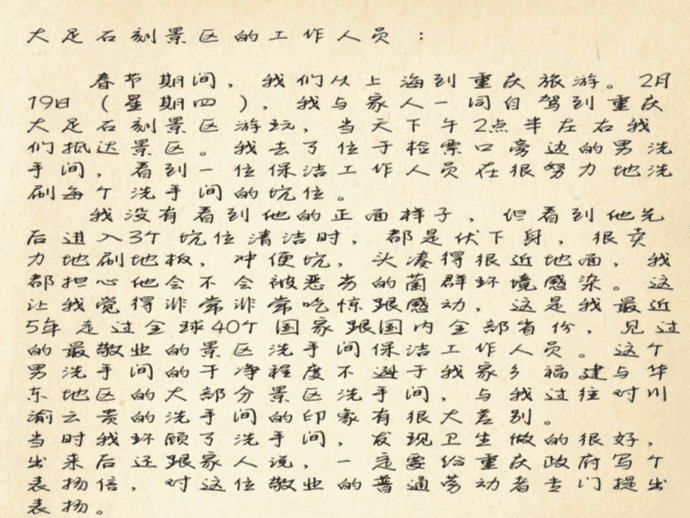 大足石刻景区的工作人员：
春节期间，我们从上海到重庆旅游。2月
19日（星期四），我与家人一同自驾到重庆
大足石刻景区游玩，当天下午2点半左右我
们抵达景区。我去了位于检票口旁边的男洗
手间，看到一位保洁工作人员在很努力地洗
刷每个洗手间的坑位。
我没有看到他的正面样子，但看到他先
后进入3个坑位清洁时，都是伏下身，很卖
力地刷地板，冲便坑，头凑得很近地面，我
都担心他会不会被恶劣的菌群环境感染。这
让我觉得非常非常吃惊跟感动，这是我最近
5年走过全球40个国家跟国内全部省份，见过
的最敬业的景区洗手间保洁工作人员。这个
男洗手间的干净程度不逊于我家乡福建与华
东地区的大部分景区洗手间，与我过往对川
渝云贵的洗手间的印象有很大差别。
当时我环顾了洗手间，发现卫生做的很好，
出来后还跟家人说，一定要给重庆政府写个
表扬信，对这位敬业的普通劳动者专门提出
表扬。